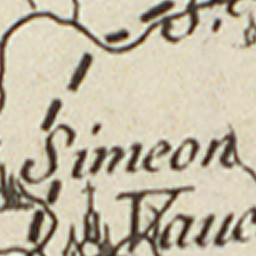 S.
Simeon
Vauc